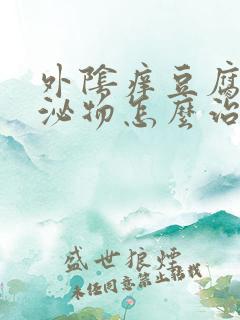 外陰痒豆腐
泌物怎麼治
盛世狼煙
未经同意禁止转载